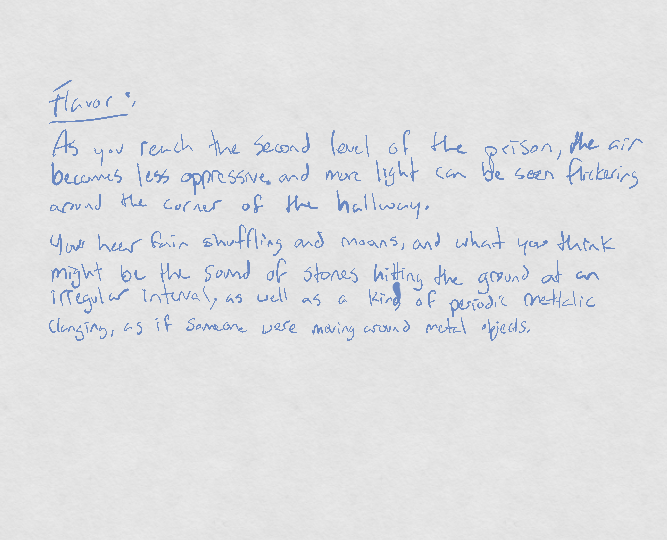 Flavor:
As you reach the second level of the prison, the air
becomes less oppressive and more light can be seen flickering
around the corner of the hallway.
You hear fain shuffling and moans, and what you think
might be the sound of stones hitting the ground at an
irregular interval, as well as a kind of periodic mettalic
clanging, as if someone were moving around metal objects.